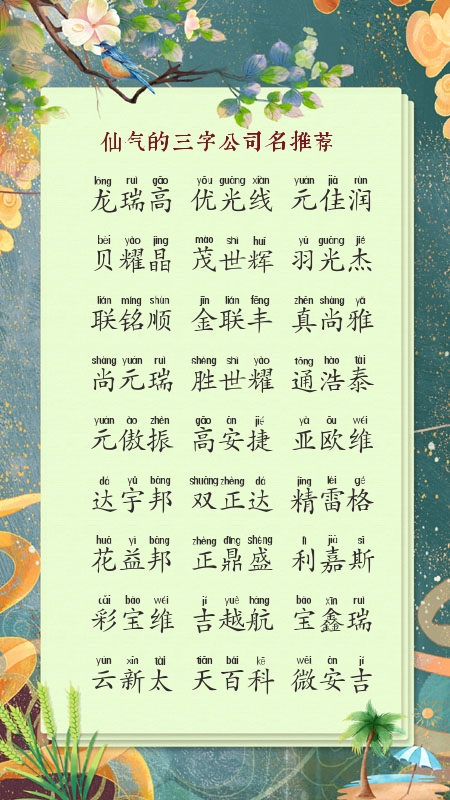 仙气的三字公司名推荐
lóng ruì gāo yōu guāng xiàn yuán jiā rùn
龙瑞高 优光线 元佳润
bèi yào jīng mào shì huī yǔ guāng jié
贝耀晶 茂世辉 羽光杰
lián míng shùn jīn lián fēng zhēn shàng yǎ
联铭顺 金联丰 真尚雅
shàng yuán ruì shèng shì yào tōng hào tài
尚元瑞 胜世耀 通浩泰
yuán ào zhèn gāo ān jié yà ōu wéi
元傲振 高安捷 亚欧维
dá yǔ bāng shuāng zhèng dá jīng léi gé
达宇邦 双正达 精雷格
huā yì bāng zhèng dǐng shèng lì jiā sī
花益邦 正鼎盛 利嘉斯
cǎi bǎo wéi jí yuè háng bǎo xīn ruì
彩宝维 吉越航 宝鑫瑞
yún xīn tài tiān bǎi kē wēi ān jí
云新太 天百科 微安吉